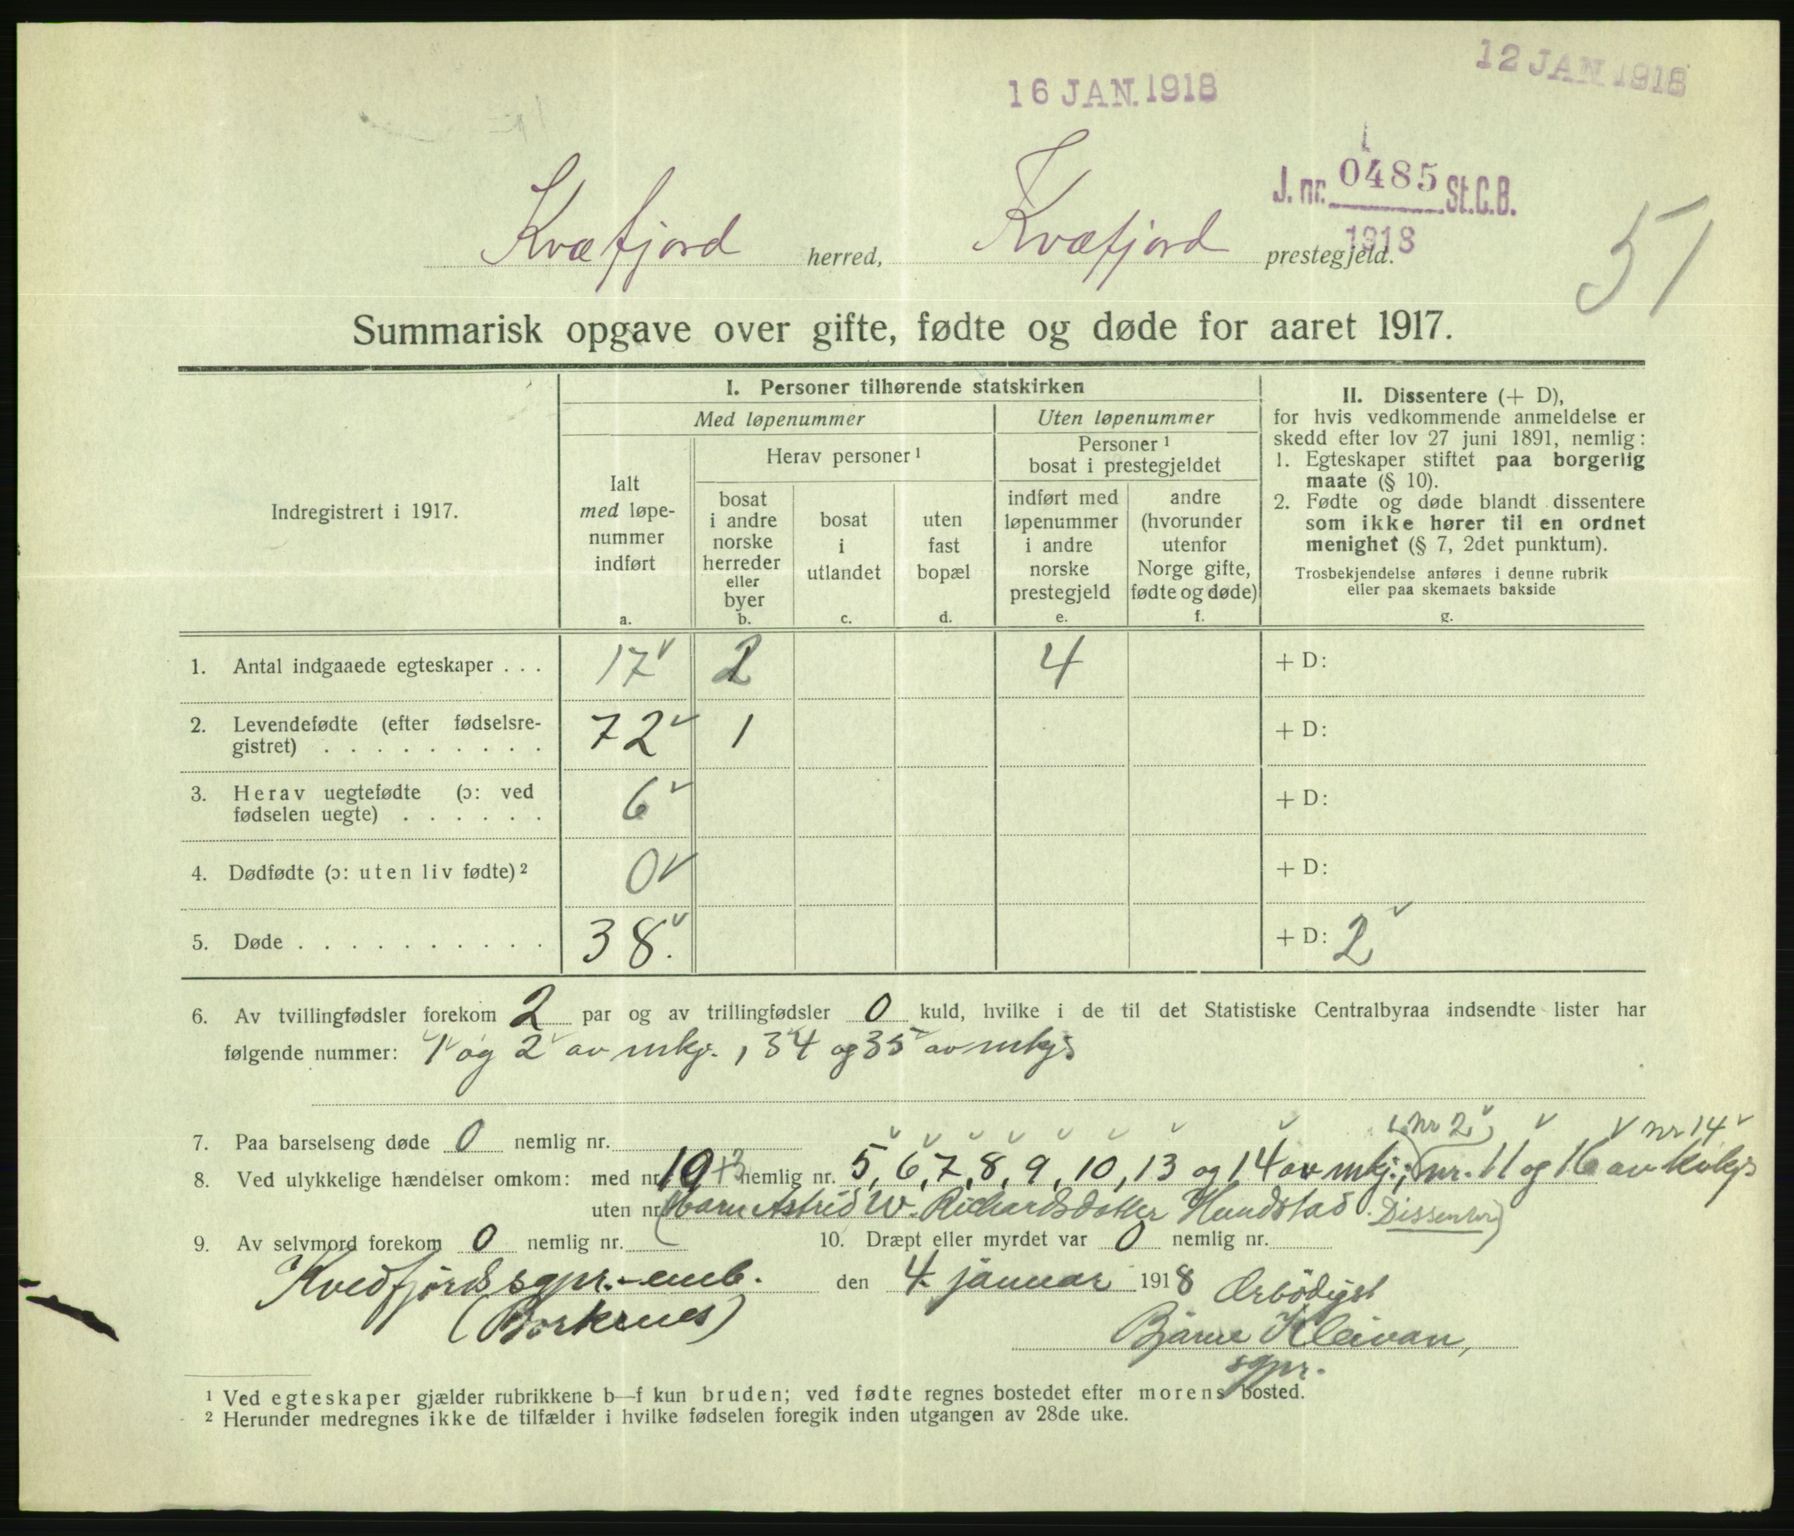 12 JAN 1918
16 JAN. 1918
J. nr. 0485 St.C.B.
1918
51
Kvæfjord herred, Kvæfjord prestegjeld.
Summarisk opgave over gifte, fødte og døde for aaret 1917.
Indregistrert i 1917.
I. Personer tilhørende statskirken
Med løpenummer
Uten løpenummer
Ialt
med løpe-
nummer
indført
a.
Herav personer ¹
bosat
i andre
norske
herreder
eller
byer
b.
bosat
i
utlandet
c.
uten
fast
bopæl
d.
Personer ¹
bosat i prestegjeldet
indført med
løpenummer
i andre
norske
prestegjeld
e.
andre
(hvorunder
utenfor
Norge gifte,
fødte og døde)
f.
II. Dissentere (+ D),
for hvis vedkommende anmeldelse er
skedd efter lov 27 juni 1891, nemlig:
1. Egteskaper stiftet paa borgerlig
maate (§ 10).
2. Fødte og døde blandt dissentere
som ikke hører til en ordnet
menighet (§ 7, 2det punktum).
Trosbekjendelse anføres i denne rubrik
eller paa skemaets bakside
g.
1. Antal indgaaede egteskaper . . . 17 2 4 + D:
2. Levendefødte (efter fødselsre-
gistret) . . . . . . . . . 72 1 + D:
3. Herav uegtefødte (ɔ: ved
fødselen uegte) . . . . . . 6 + D:
4. Dødfødte (ɔ: uten liv fødte) ² 0 + D:
5. Døde . . . . . . . . . . 38. + D: 2
6. Av tvillingfødsler forekom 2 par og av trillingfødsler 0 kuld, hvilke i de til det Statistiske Centralbyraa indsendte lister har
følgende nummer: 1 og 2 av mkj., 34 og 35 av mkj.
7. Paa barselseng døde 0 nemlig nr.
nr 2, nr 14
8. Ved ulykkelige hændelser omkom: med nr. 10 +3 nemlig nr. 5, 6, 7, 8, 9, 10, 13 og 14 av mkj.; nr. 11 og 16 av kvkj.
uten nr. (Marie Astrid W. Richardsdatter Hundstad. Dissenter)
9. Av selvmord forekom 0 nemlig nr. 10. Dræpt eller myrdet var 0 nemlig nr.
Kvedfjords sgpr.-emb. den 4. januar 1918 Ærbödigst
(Borkenes)
Bjarne Kleivan,
sgpr.
¹ Ved egteskaper gjælder rubrikkene b—f kun bruden; ved fødte regnes bostedet efter morens bosted.
² Herunder medregnes ikke de tilfælder i hvilke fødselen foregik inden utgangen av 28de uke.